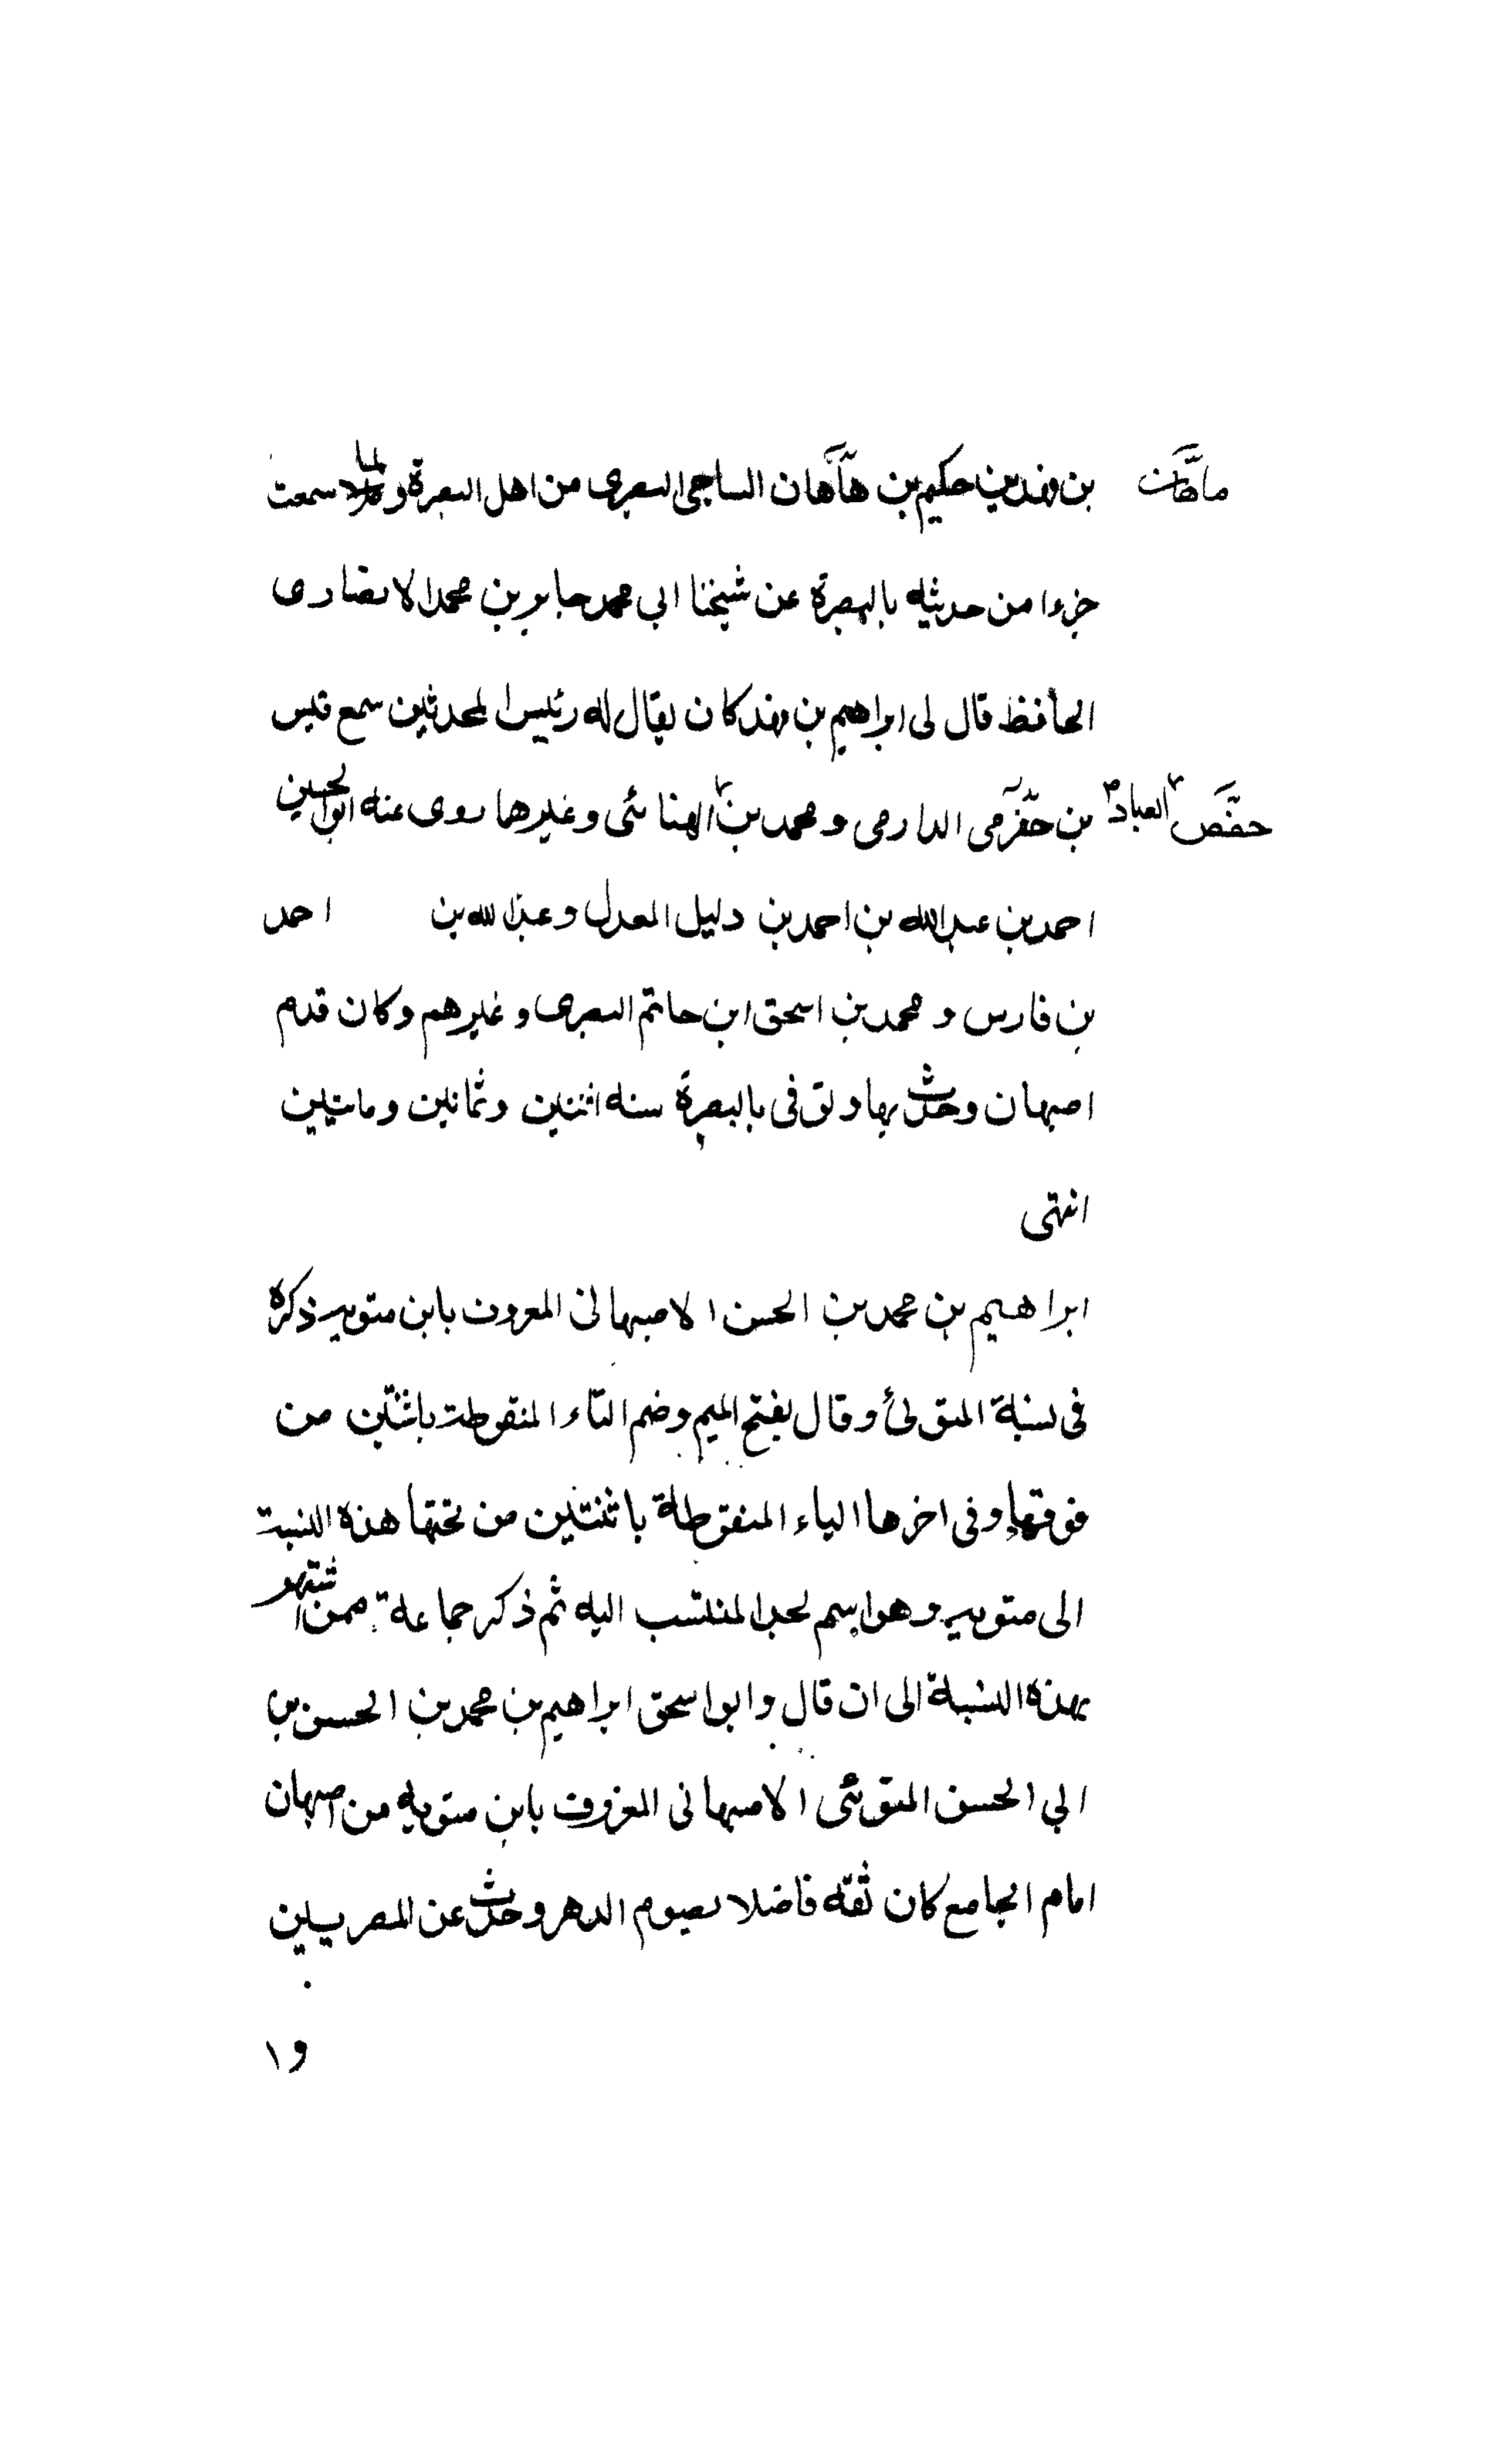 ماهان
بن فهد بن حكيم بن هاهان الساجى البصرى من اهل البصرة و سمعت
جزءا من حديثه بالبصرة عن شيخنا ابى محمد جابر بن محمد الانصارى
الحافظ قال لى ابراهيم بن فهد كان يقال له رئيس المحدثين سمع قيس
حفص العباد
بن حفرمى الدارمى و محمد بن الهنائى وغيرهما روى عنه ابو الحسين
احمد بن عبد الله بن احمد بن دليل المعدل و عبد الله بن احمد
بن فارس و محمد بن اسحق ابن حاتم البصرى و غيرهم و كان قدم
اصبهان وحدث بها و توفى بالبصرة سنه اثنين و ثمانين و مايتين
انتهى
ابراهيم بن محمد بن الحسن الاصبهانى المعروف بابن متويه ذكره
فى نسبة المتوئى و قال بفتح الميم وضم التاء المنقوطة باثنتين من
فوقها و فى اخرها الياء المنقوطة باثنتين من تحتها هذه النسبة
الى متويه و هو اسم لجد المنتسب اليه ثم ذكر جماعة ممن اشتهر
بهذه النسبة الى ان قال و ابو اسحق ابراهيم بن محمد بن الحسن بن
ابى الحسن المتوئى الاصبهانى المعروف بابن متويه من اصبهان
امام الجامع كان ثقة فاضلا يصوم الدهر و حدث عن المصريين
و ا